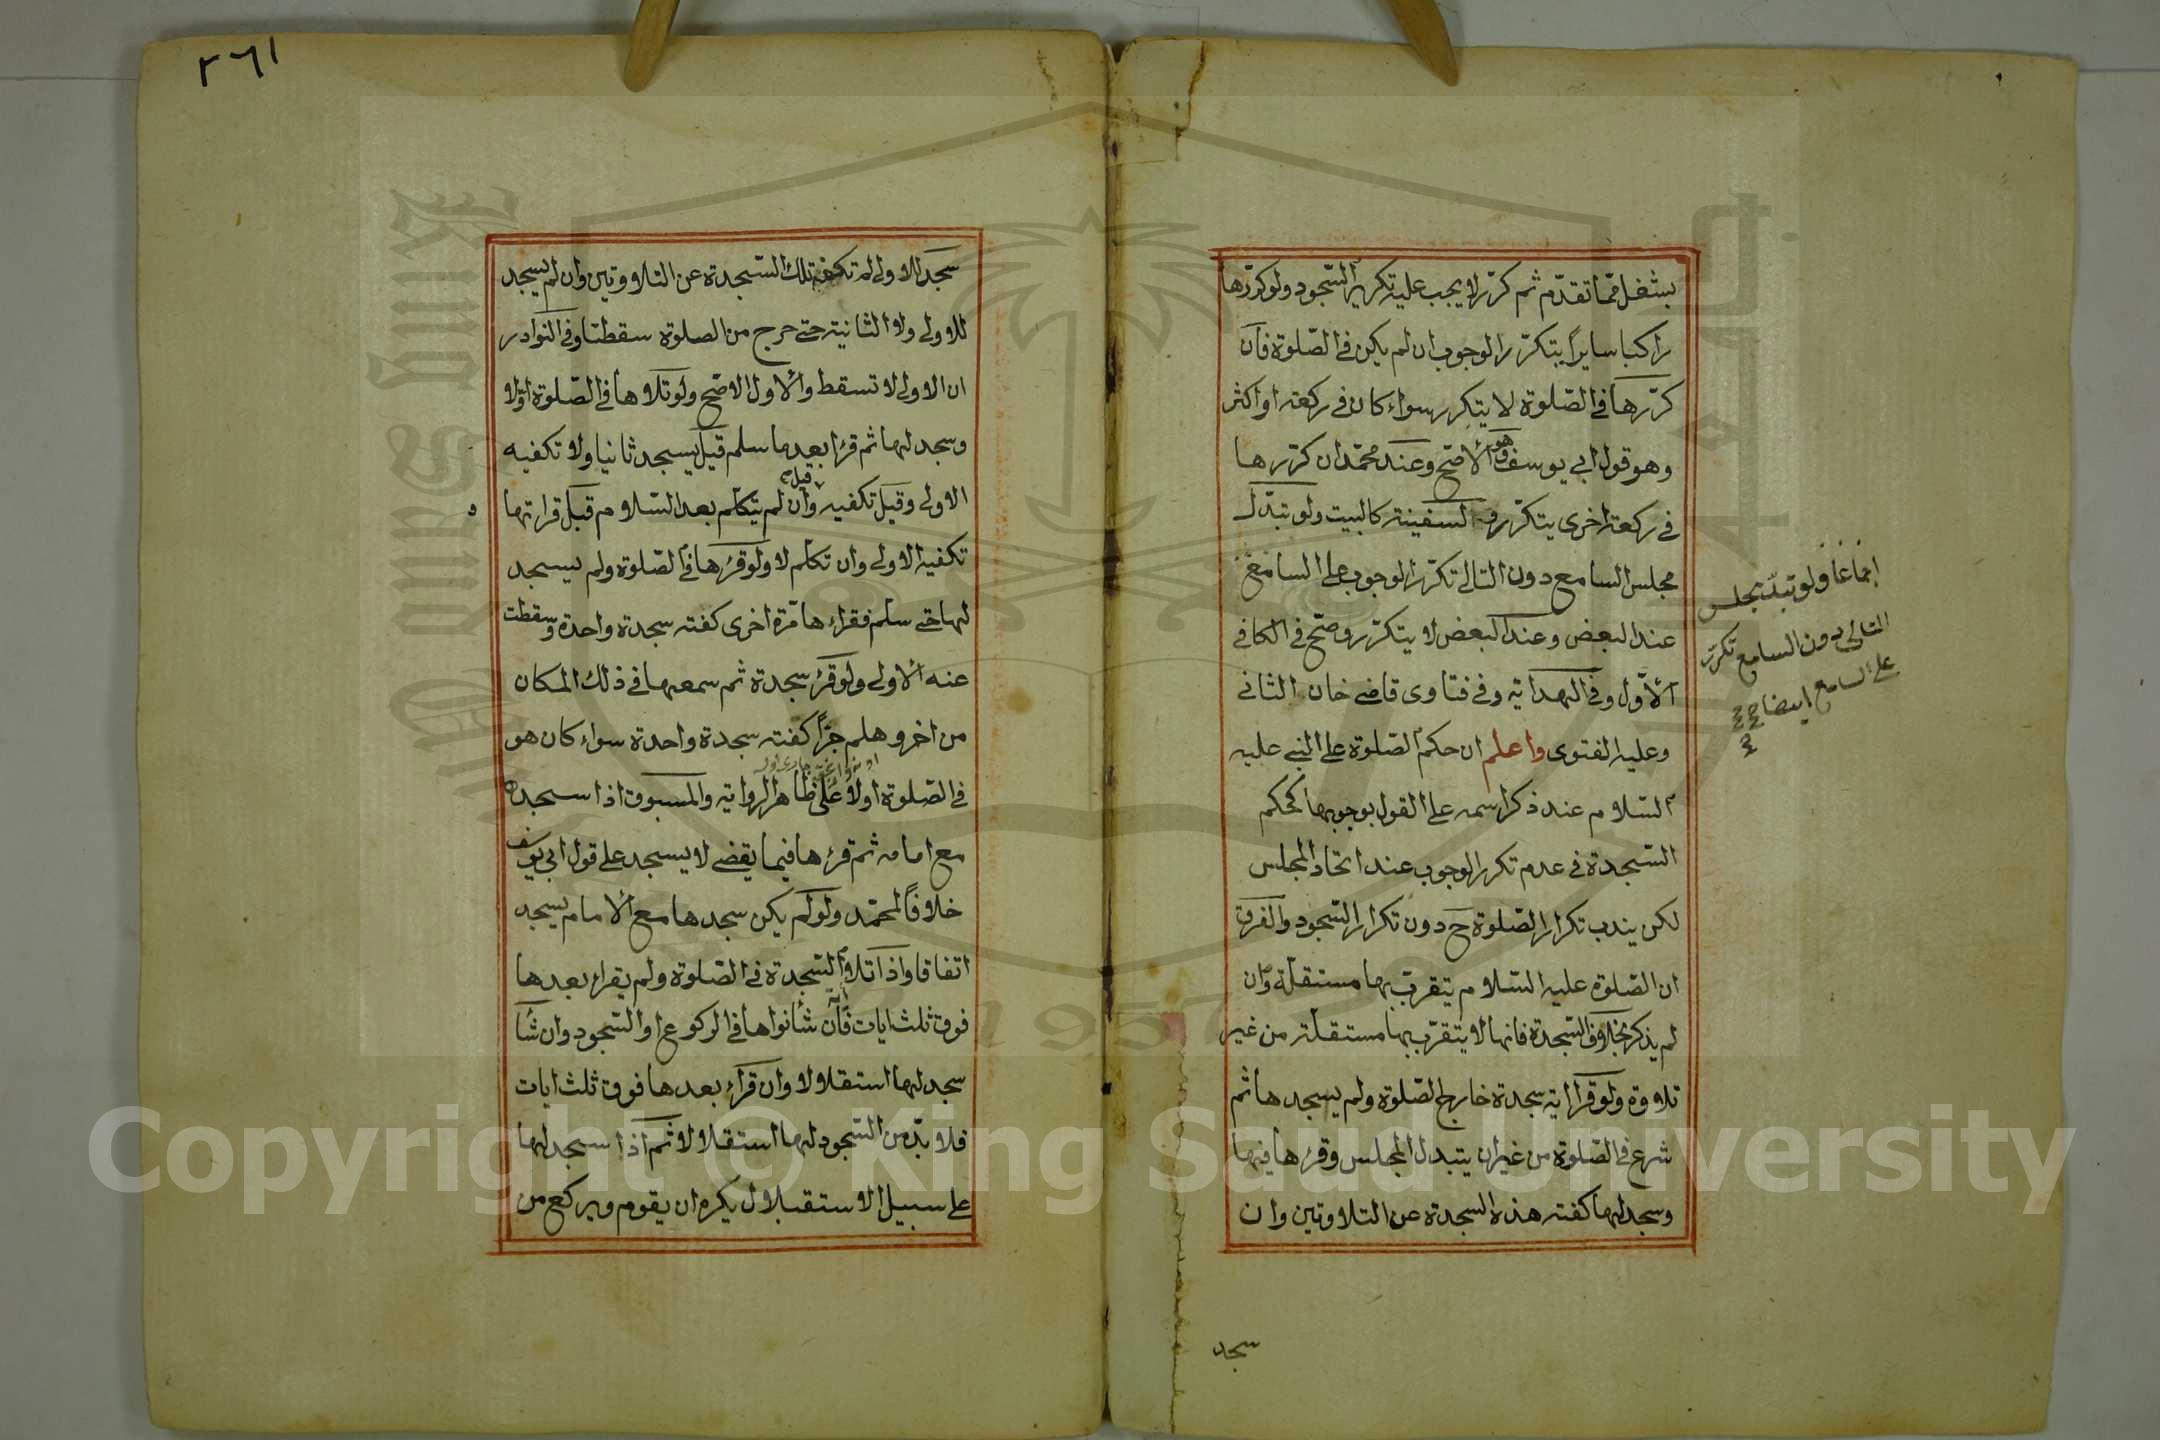 بشغل مما تقدم ثم كرر لا يجب عليه تكرير السجود ولو كررها
راكبا سايرا يتكرر الوجوب ان لم يكن في الصلوة فان
كررها في الصلوة لا يتكرر سواء كان في ركعة او اكثر
وهو قول ابي يوسف وهو الاصح وعند محمد ان كررها
في ركعة اخرى يتكرر والسفينة كالبيت ولو تبدل
مجلس السامع دون التالي تكرر الوجوب على السامع
عند البعض وعند البعض لا يتكرر وصحح في الكافي
الاول وفي الهداية وفي فتاوى قاضي خان الثاني
وعليه الفتوى واعلم ان حكم الصلوة على النبي عليه
السلام عند ذكر اسمه على القول بوجوبها كحكم
السجدة في عدم تكرر الوجوب عند اتحاد المجلس
لكن يندب تكرار الصلوة ح دون تكرار السجود والفرق
ان الصلوة عليه السلام يتقرب بها مستقلة وان
لم يذكر بخلاف السجدة فانها لا يتقرب بها مستقلة من غير
تلاوة ولو قرا اية سجدة خارج الصلوة ولم يسجد ها ثم
شرع في الصلوة من غير ان يتبدل المجلس وقرءها فيها
وسجد لها كفته هذه السجدة عن التلاوتين وان
سجد
اجماعا ولو تبدل مجلس
التالي دون السامع تكرر
على السامع ايضا
٢٦١
سجد للاولى لم تكفه تلك السجدة عن التلاوتين وان لم يسجد
للاولى ولا الثانية حتى خرج من الصلوة سقطتا وفي النوادر
ان الاولى لا تسقط والاول الاصح ولو تلاها في الصلوة اولا
وسجد لها ثم قرا بعد ما سلم قيل يسجد ثانيا ولا تكفيه
الاولى وقيل تكفيه وقيل ان لم يتكلم بعد السلام قبل قراءتها
تكفيه الاولى وان تكلم لا ولو قرءها في الصلوة ولم يسجد
لها حتى سلم فقراءها مرة اخرى كفته سجدة واحدة وسقطت
عنه الاولى ولو قرء سجدة ثم سمعها في ذلك المكان
من اخر وهلم جرا كفته سجدة واحدة سواء كان هو
في الصلوة اولا على ظاهر الرواية والمسبوق اذا سجد
مع امامه ثم قرءها فيما يقضي لا يسجد على قول ابي يوسف
خلافا لمحمد ولو لم يكن سجدها مع الامام يسجد
اتفاقا واذا تلا السجدة في الصلوة ولم يقراء بعدها
فوق ثلث ايات فان شأ نواها في الركوع او السجود وان شأ
سجد لها استقلالا وان قراء بعدها فوق ثلث ايات
فلا بد من السجود لها استقلالا ثم اذا سجد لها
على سبيل الاستقلال يكره ان يقوم ويركع من